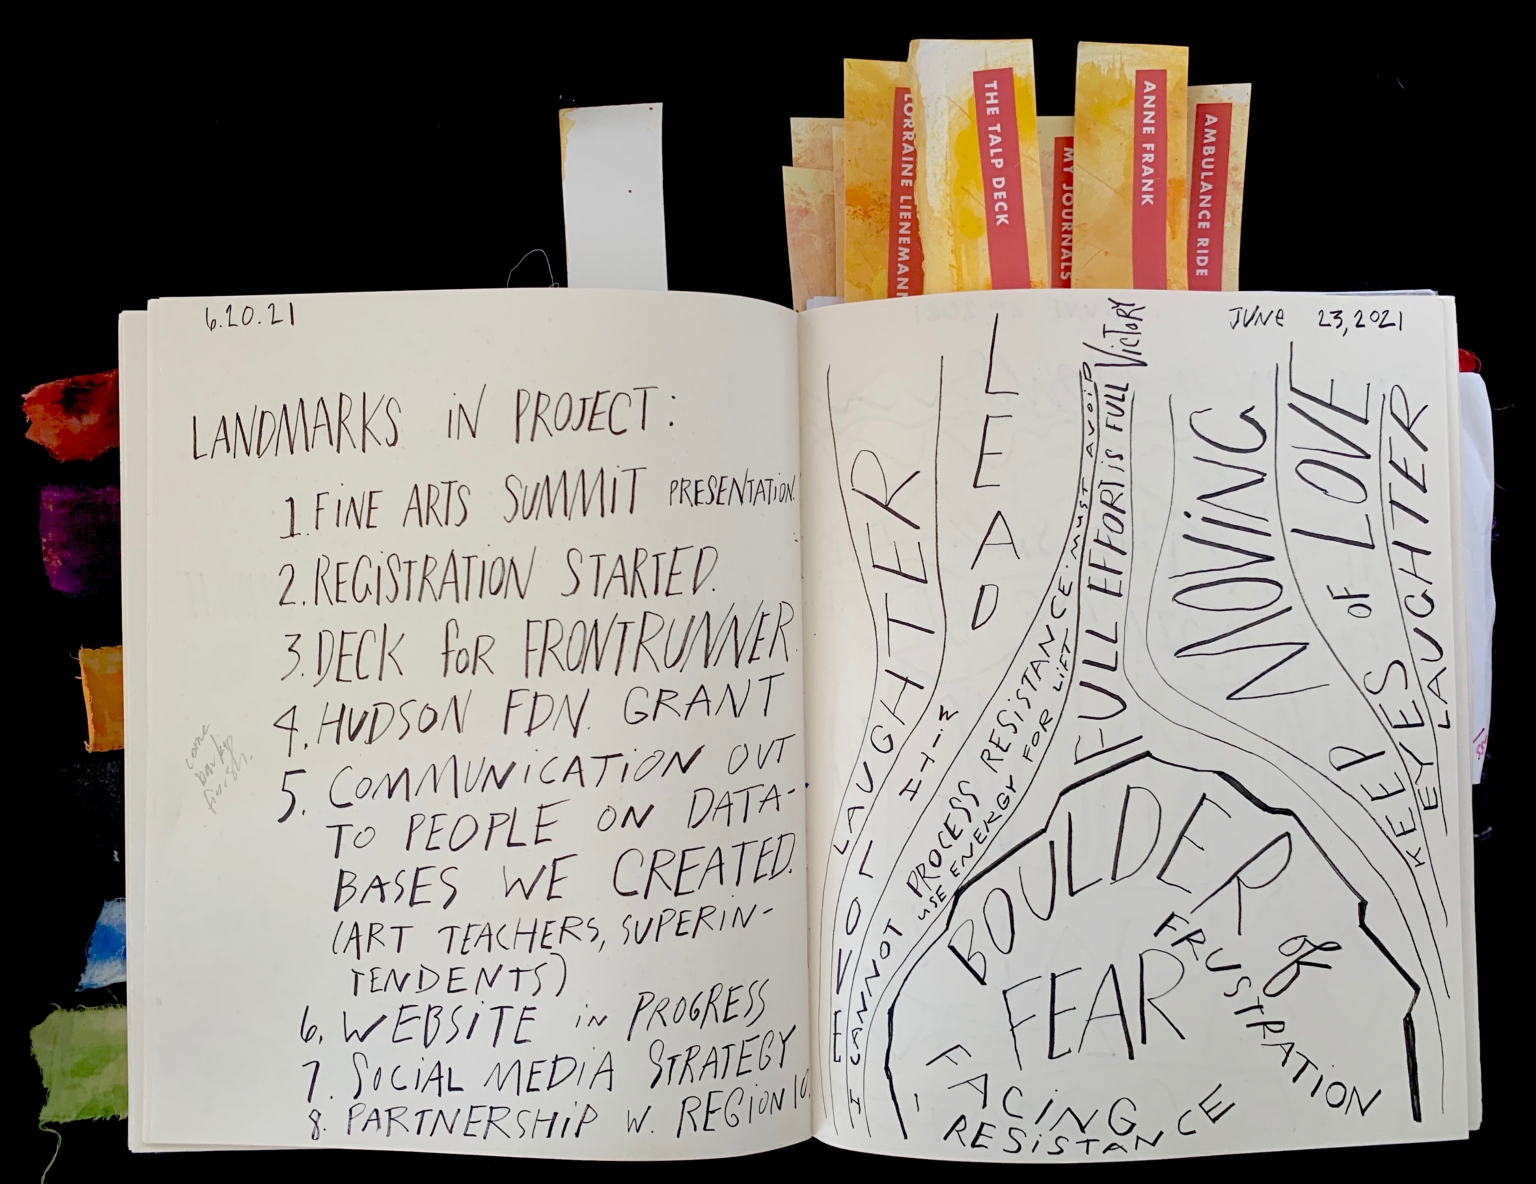 LORRAINE LIENEMANN
THE TALP DECK
MY JOURNALS
ANNE FRANK
AMBULANCE RIDE
6.20.21
LANDMARKS iN PROJECT:
1. FiNE ARTS SUMMiT PRESENTATiON.
2. REGiSTRATiON STARTED.
3. DECK foR FRONTRUNNER
4. HUDSON FDN. GRANT
5. COMMUNiCATiON OUT
TO PEOPLE ON DATA-
BASES WE CREATED.
(ART TEACHERS, SUPERIN-
TENDENTS)
6. WEBSiTE in PROGRESS
7. SOCiAL MEDiA STRATEGY
8. PARTNERSHiP W. REGiON 10.
come
back
finish.
JUNE 23, 2021
LAUGHTER
LEAD
WITH
LOVE
I CANNOT
PROCESS RESiSTANCE. MUST AVOiD
USE ENERGY FOR LiFT
FULL EFFORT iS FULL VicTORY
MOViNG
KEEP EYES of LOVE
LAUGHTER
BOULDER of
FEAR
FRUSTRATiON
FACiNG
RESiSTANCE